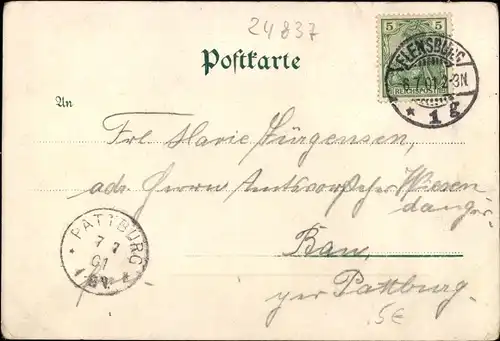 24837
Postkarte
5 5
REICHSPOST
FLENSBURG
6.7.01.2-3N.
* 1 g
An
Frl. Marie Jürgensen,
adr. Herrn Amtsvorsteher
Bau,
per Pattburg.
* PATTBURG *
7 7
01
5€